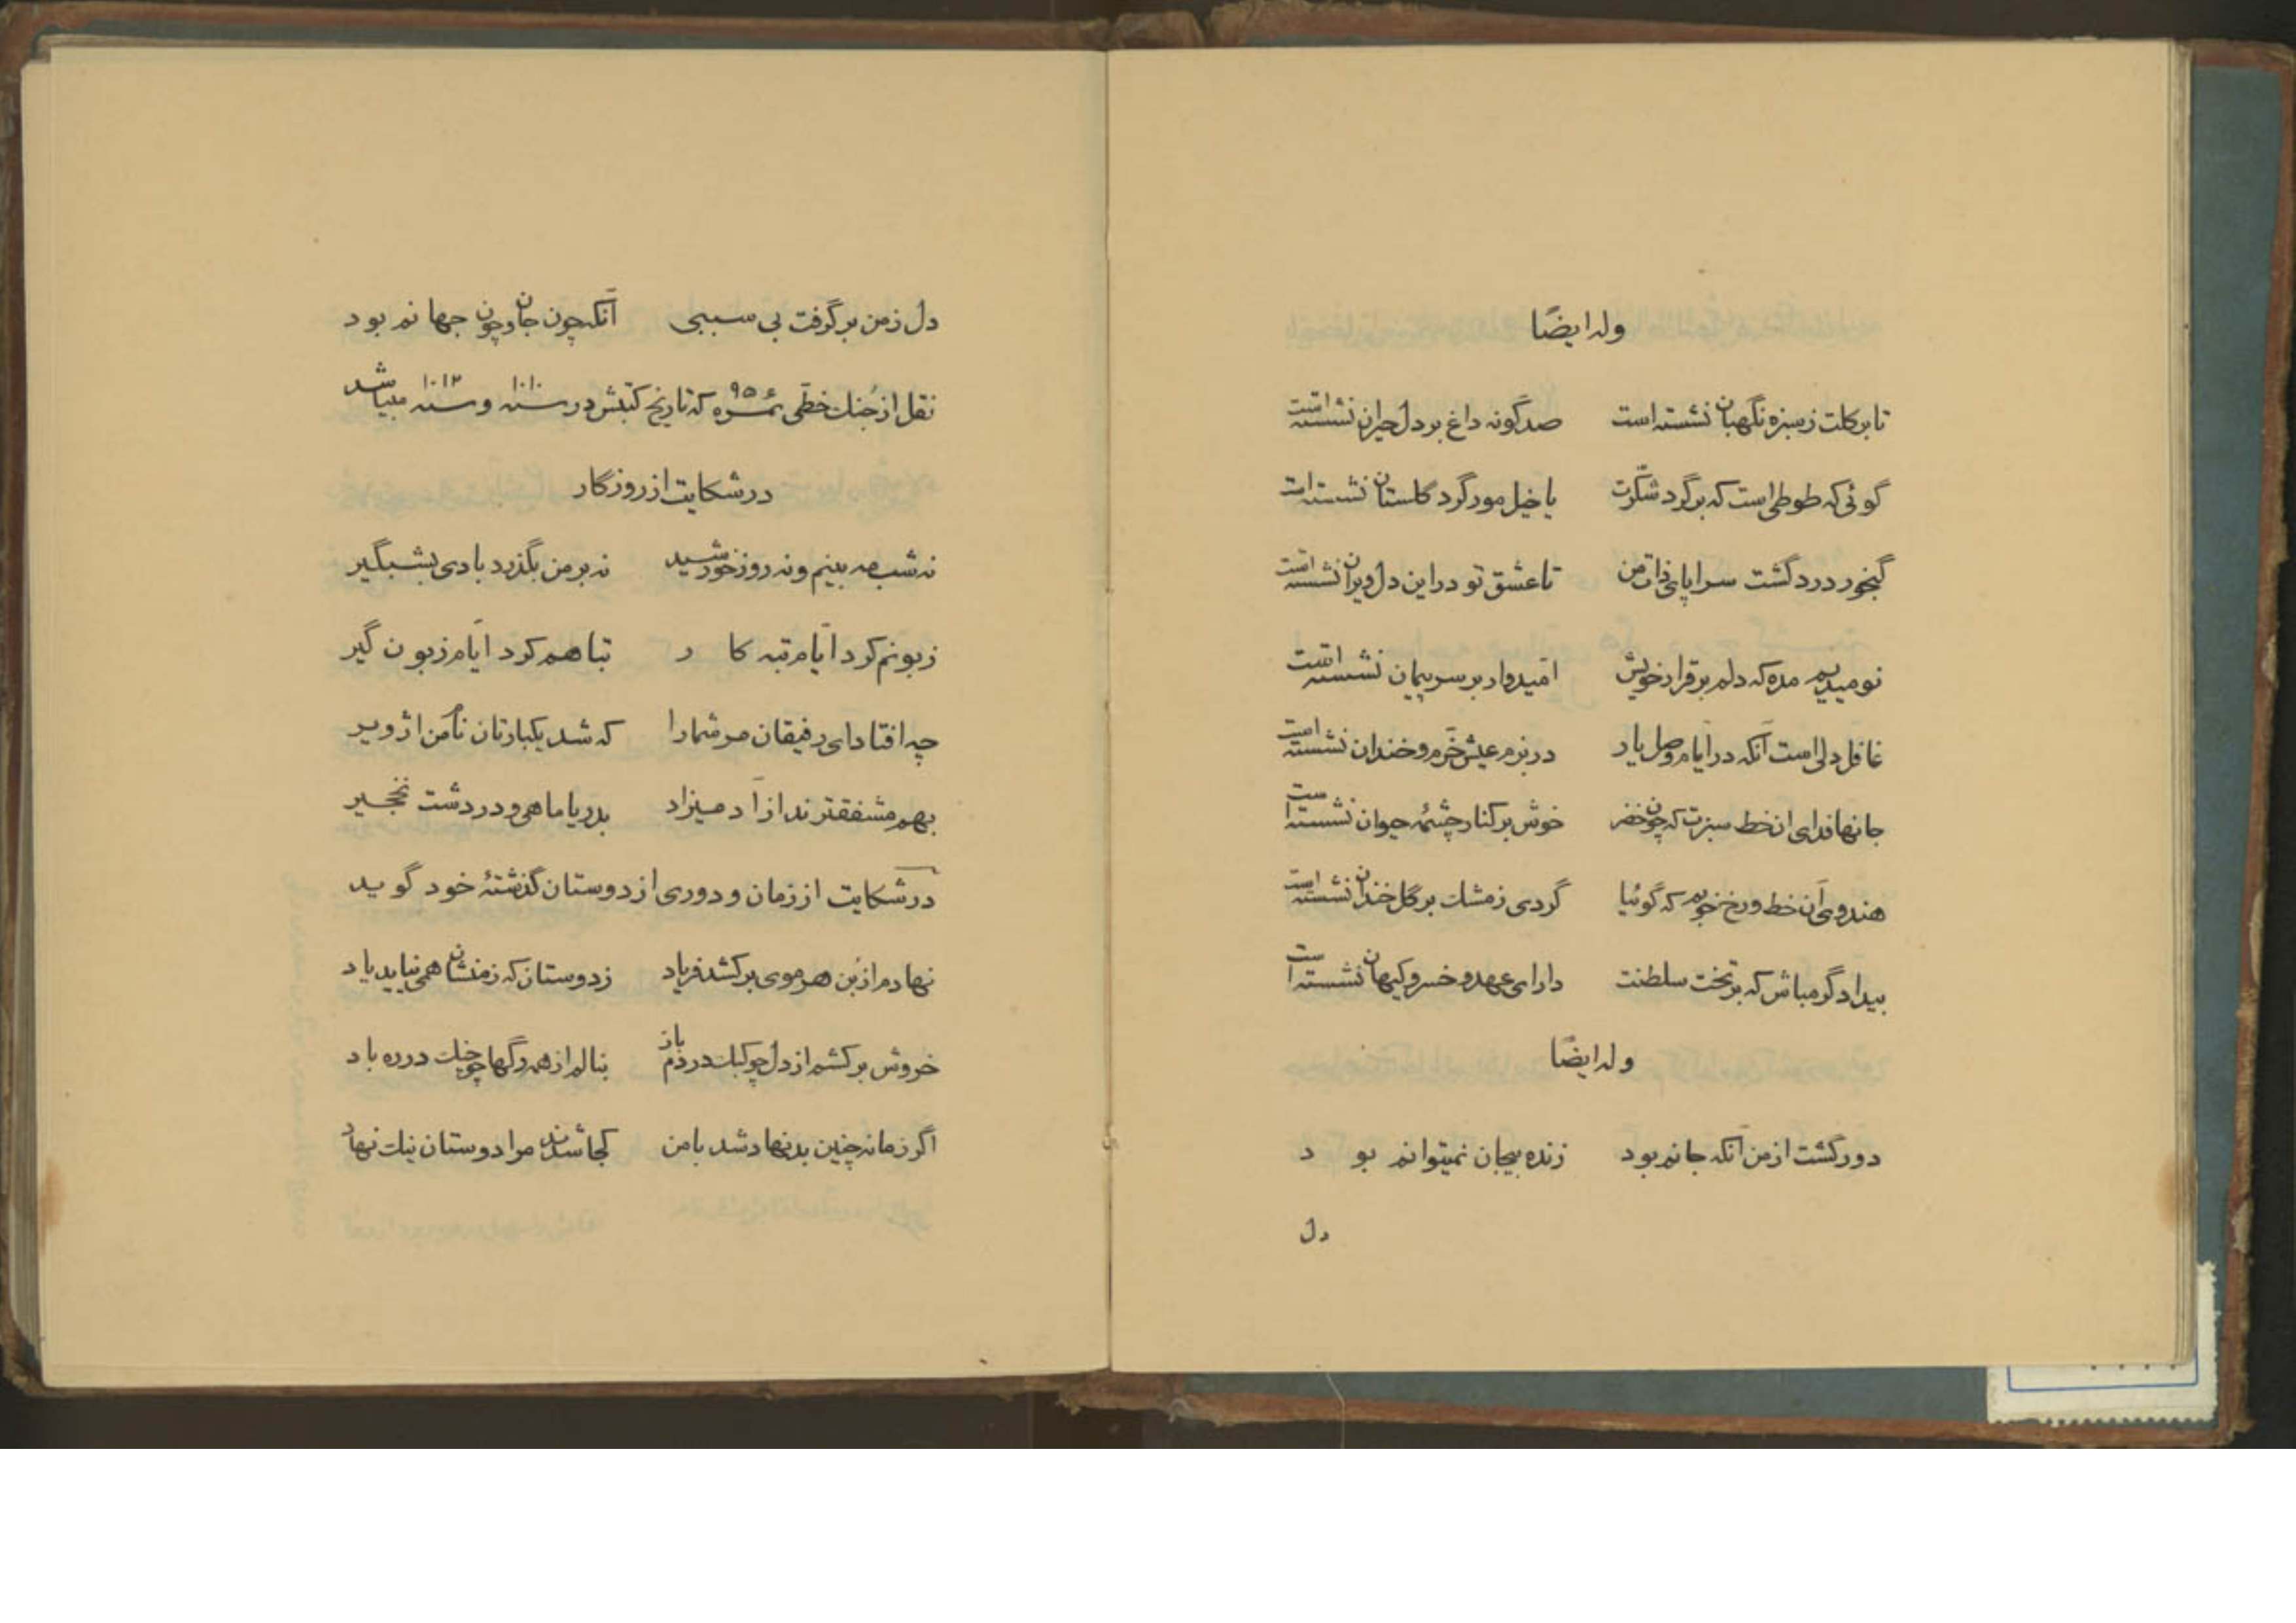 وله ایضًا
تا بر گلت ز سبزه نگهبان نشسته است صد گونه داغ بر دل حیران نشسته است
گوئی که طوطی است که بر گرد شکّرت یا خیل مور گرد گلستان نشسته است
گنجور درد گشت سراپای ذات من تا عشق تو در این دل ویران نشسته است
نومیدیم مده که دلم بر قرار خویش امّیدوار بر سر پیمان نشسته است
غافل دلی است آنکه در ایام وصل یار در بزم عیش خرّم و خندان نشسته است
جانها فدای ان خط سبزت که چون خضر خوش بر کنار چشمهٔ حیوان نشسته است
هندوی آن خط و رخ خوبم که گوئیا گردی ز مشک بر گل خندان نشسته است
بیدادگر مباش که بر تخت سلطنت دارای عهد و خسرو کیهان نشسته است
وله ایضًا
دور گشت از من آنکه جانم بود زنده بیجان نمیتوانم بود
دل
دل ز من بر گرفت بی سببی آنکه چون جان و چون جهانم بود
نقل از جُنک خطّی نمره ۹۵۶ که تاریخ کتبش در سنه ۱۰۱۰ و سنه ۱۰۱۲ میباشد
در شکایت از روزگار
نه شب مه بینم و نه روز خورشید نه بر من بگذرد بادی بشبگیر
زبونم کرد ایّام تبه کار تباهم کرد ایّام زبون گیر
چه افتاد ای رفیقان مر شما را که شد یکبارتان نام من از ویر
بهم مشفقترند از آدمیزاد بدریا ماهی و در دشت نخجیر
در شکایت از زمان و دوری از دوستان گذشتهٔ خود گوید
نهادم از بُن هر موی برکشد فریاد ز دوستان که ز منشان همی نیاید یاد
خروش برکشم از دل چو کبک در دم باز بنالم از همه رگها چو چنک در ره باد
اگر زمانه چنین بدنهاد شد با من کجا شدند مرا دوستان نیک نهاد